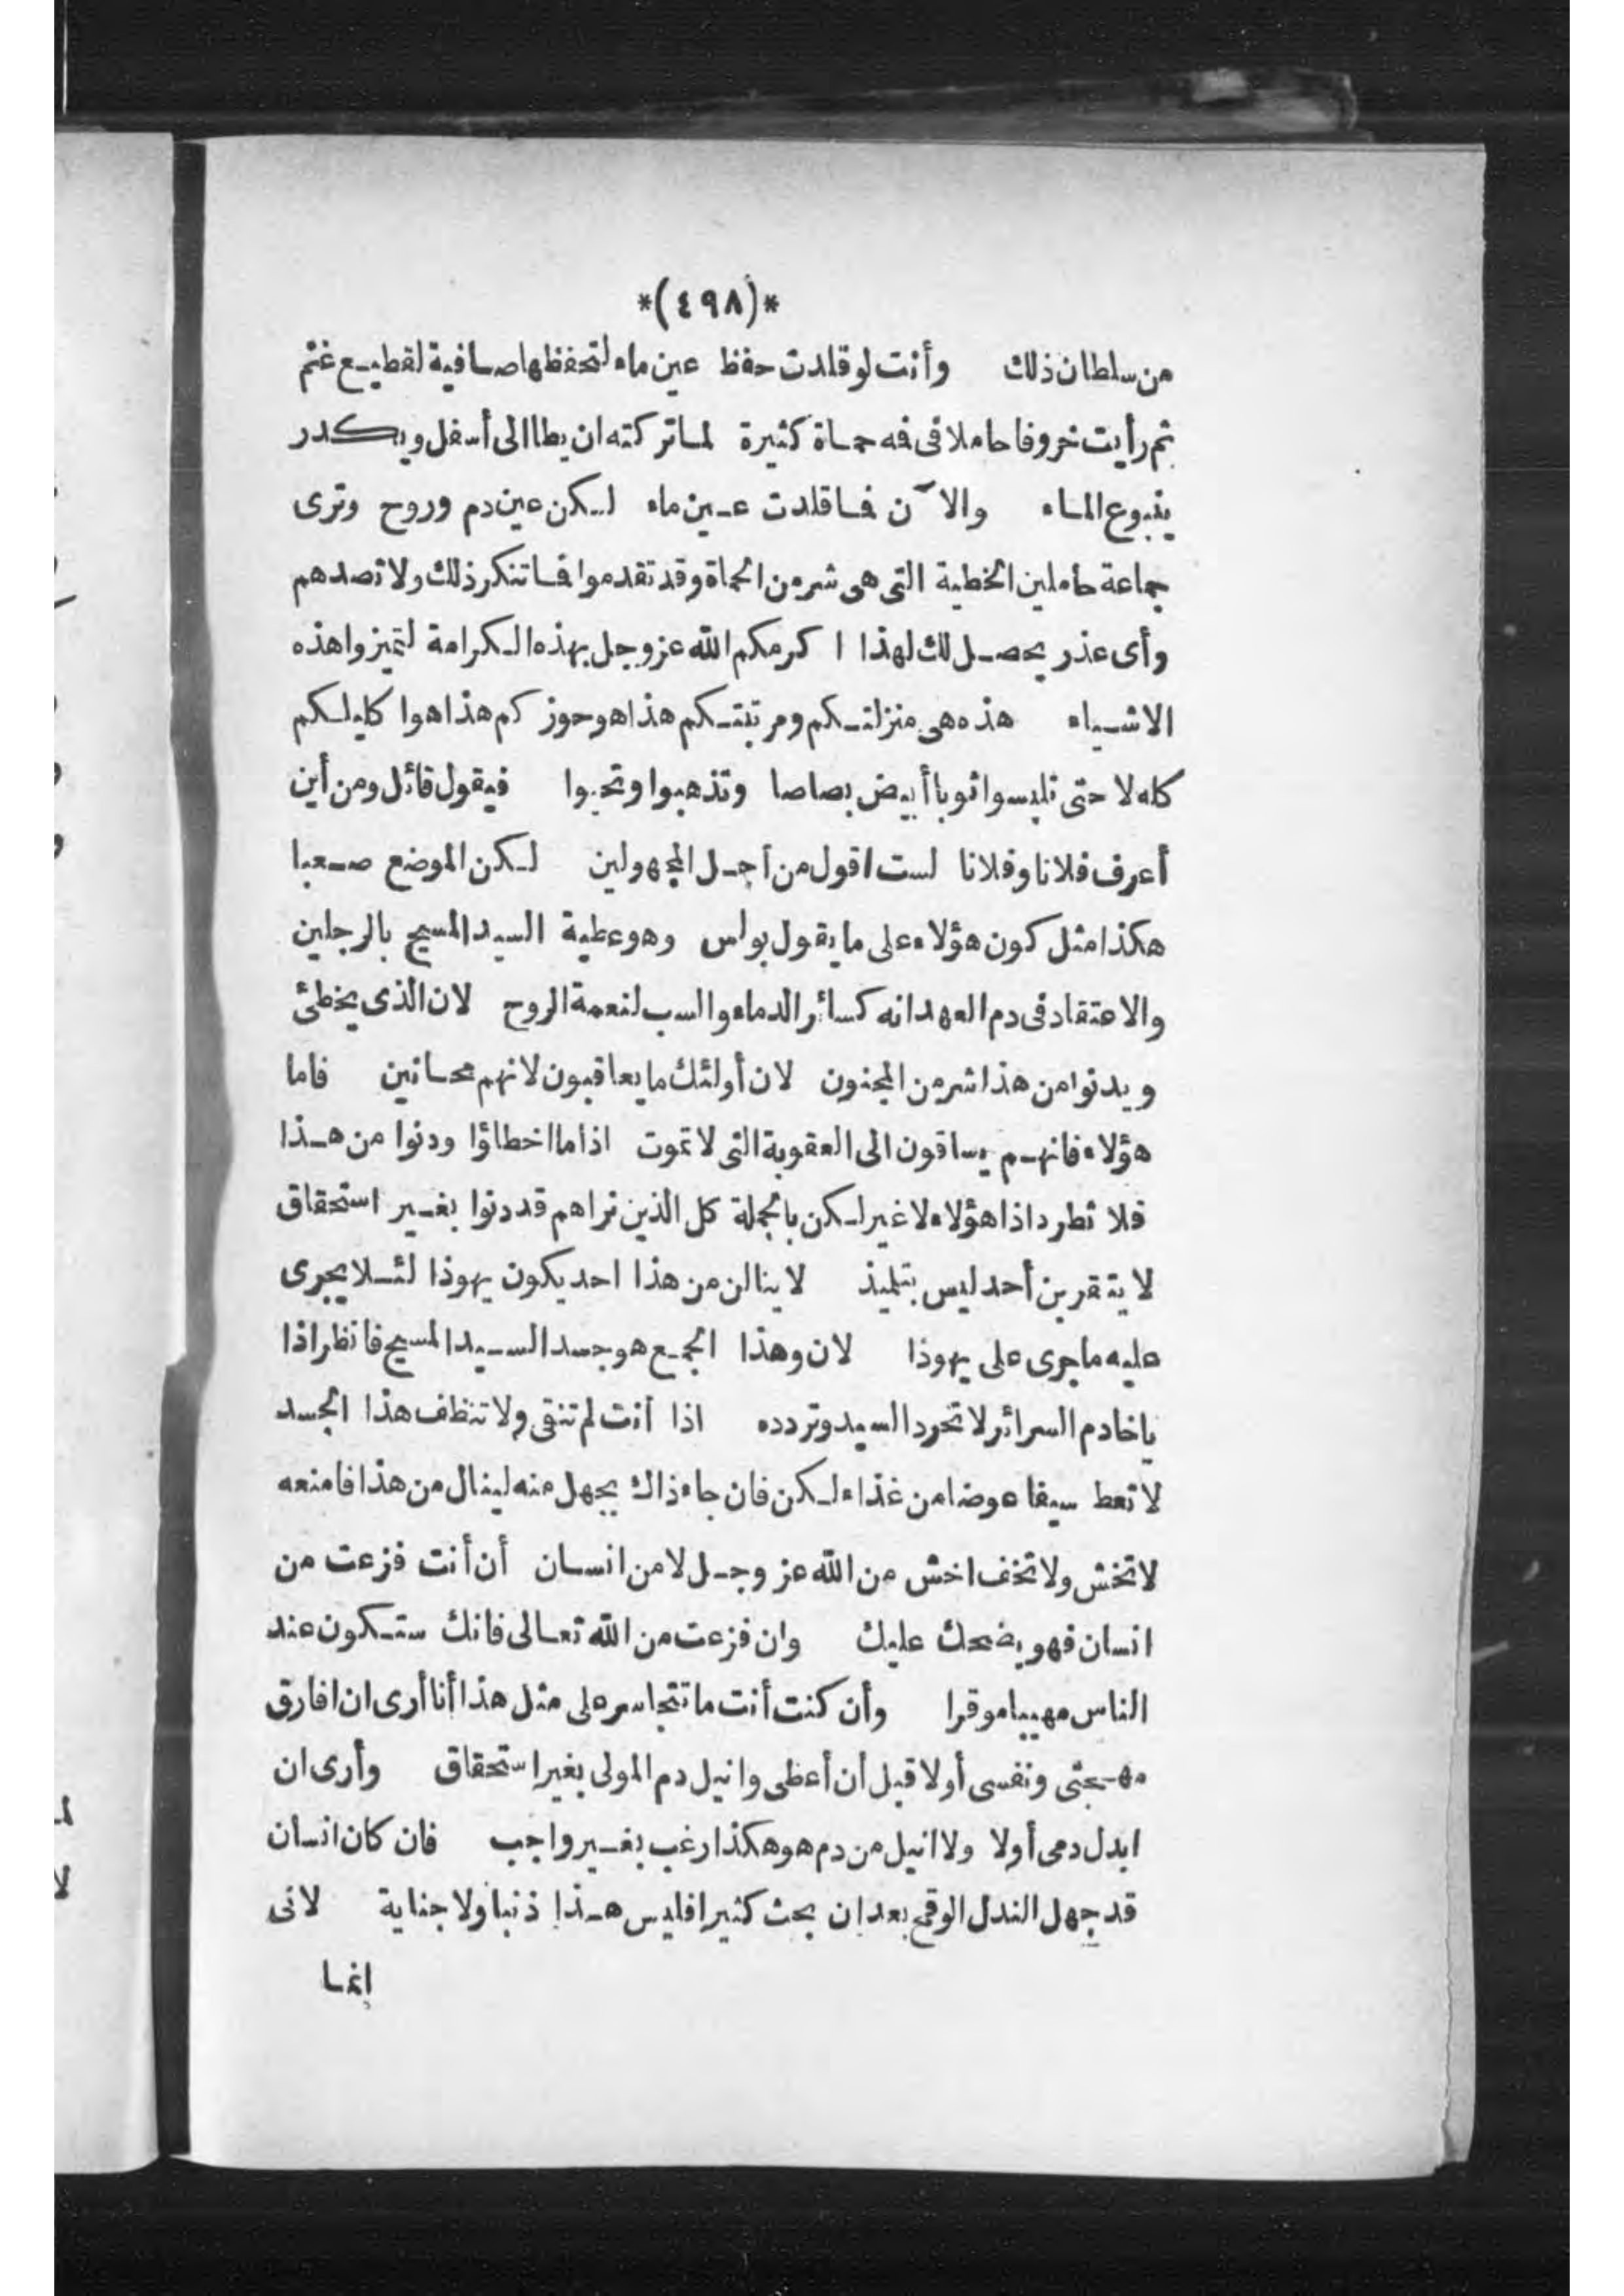 *(٤٩٨)*
من سلطان ذلك وأنت لو قلدت حفظ عين ماء لتحفظها صافية لقطيع غنم
ثم رأيت خروفا حاملا فى فمه حماة كثيرة لما تركته ان يطا الى أسفل ويكدر
ينبوع الماء والآن فما قلدت عين ماء لكن عين دم وروح وترى
جماعة حاملين الخطية التى هى شر من الحماة وقد تقدموا فما تنكر ذلك ولا تصدهم
وأى عذر يحصل لك لهذا اكرمكم الله عز وجل بهذه الكرامة لتميزوا هذه
الاشياء هذه هى منزلتكم ومرتبتكم هذا هو حوزكم هذا هوا كليلكم
كله لا حتى تلبسوا ثوبا أبيض بصاصا وتذهبوا وتجبوا فيقول قائل ومن أين
أعرف فلانا وفلانا لست اقول من أجل المجهولين لكن الموضع صعبا
هكذا مثل كون هؤلاء على ما يقول بولس وهو عطية السيد المسيح بالرجلين
والاعتقاد فى دم العهد انه كسائر الدماء والسب لنعمة الروح لان الذى يخطئ
ويدنوا من هذا شر من المجنون لان أولئك ما يعاقبون لانهم مجانين فاما
هؤلاء فانهم يساقون الى العقوبة التى لا تموت اذا ما اخطاؤا ودنوا من هذا
فلا تطرد اذا هؤلاء لا غير لكن بالجملة كل الذين نراهم قد دنوا بغير استحقاق
لا يتقربن أحد ليس بتلميذ لا ينالن من هذا احد يكون يهوذا لئلا يجرى
عليه ما جرى على يهوذا لان وهذا الجمع هو جسد السيد المسيح فانظر اذا
ياخادم السرائر لا تحرد السيد وتردده اذا أنت لم تنقى ولا تنظف هذا الجسد
لا تعط سيفا عوضا من غذاء لكن فان جاء ذاك بجهل منه لينال من هذا فامنعه
لا تخش ولا تخف اخش من الله عز وجل لا من انسان أن أنت فزعت من
انسان فهو يضحك عليك وان فزعت من الله تعالى فانك ستكون عند
الناس مهيبا موقرا وأن كنت أنت ما تتجاسر على مثل هذا أنا أرى ان افارق
مهجتى ونفسى أولا قبل أن أعظى وانيل دم المولى بغير استحقاق وأرى ان
ابدل دمى أولا ولا انيل من دم هو هكذا رغب بغير واجب فان كان انسان
قد جهل الندل الوقح بعد ان بحث كثيرا فليس هذا ذنبا ولا جناية لانى
انما